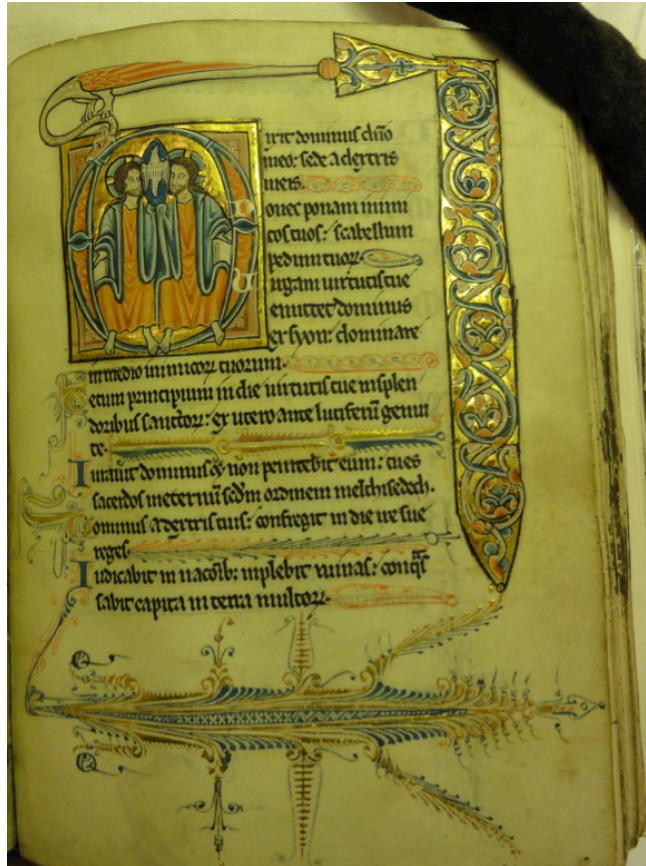 ixit dominus dño
meo: sede a dextris
meis.
onec ponam inimi
cos tuos: scabellum
pedum tuoꝝ.
irgam uirtutis tue
emittet dominus
ex syon: dominare
in medio inimicoꝝ tuorum.
ecum principium in die uirtutis tue in splen
doribus sanctoꝝ: ex utero ante luciferū genui
te.
Iurauit dominus ⁊ non penitebit eum: tu es
sacerdos in eternū scdm ordinem melchisedech.
ominus a dextris tuis: confregit in die ire sue
reges.
Iudicabit in nacōib: inplebit ruinas: conq̄s
sabit capita in terra multoꝝ.